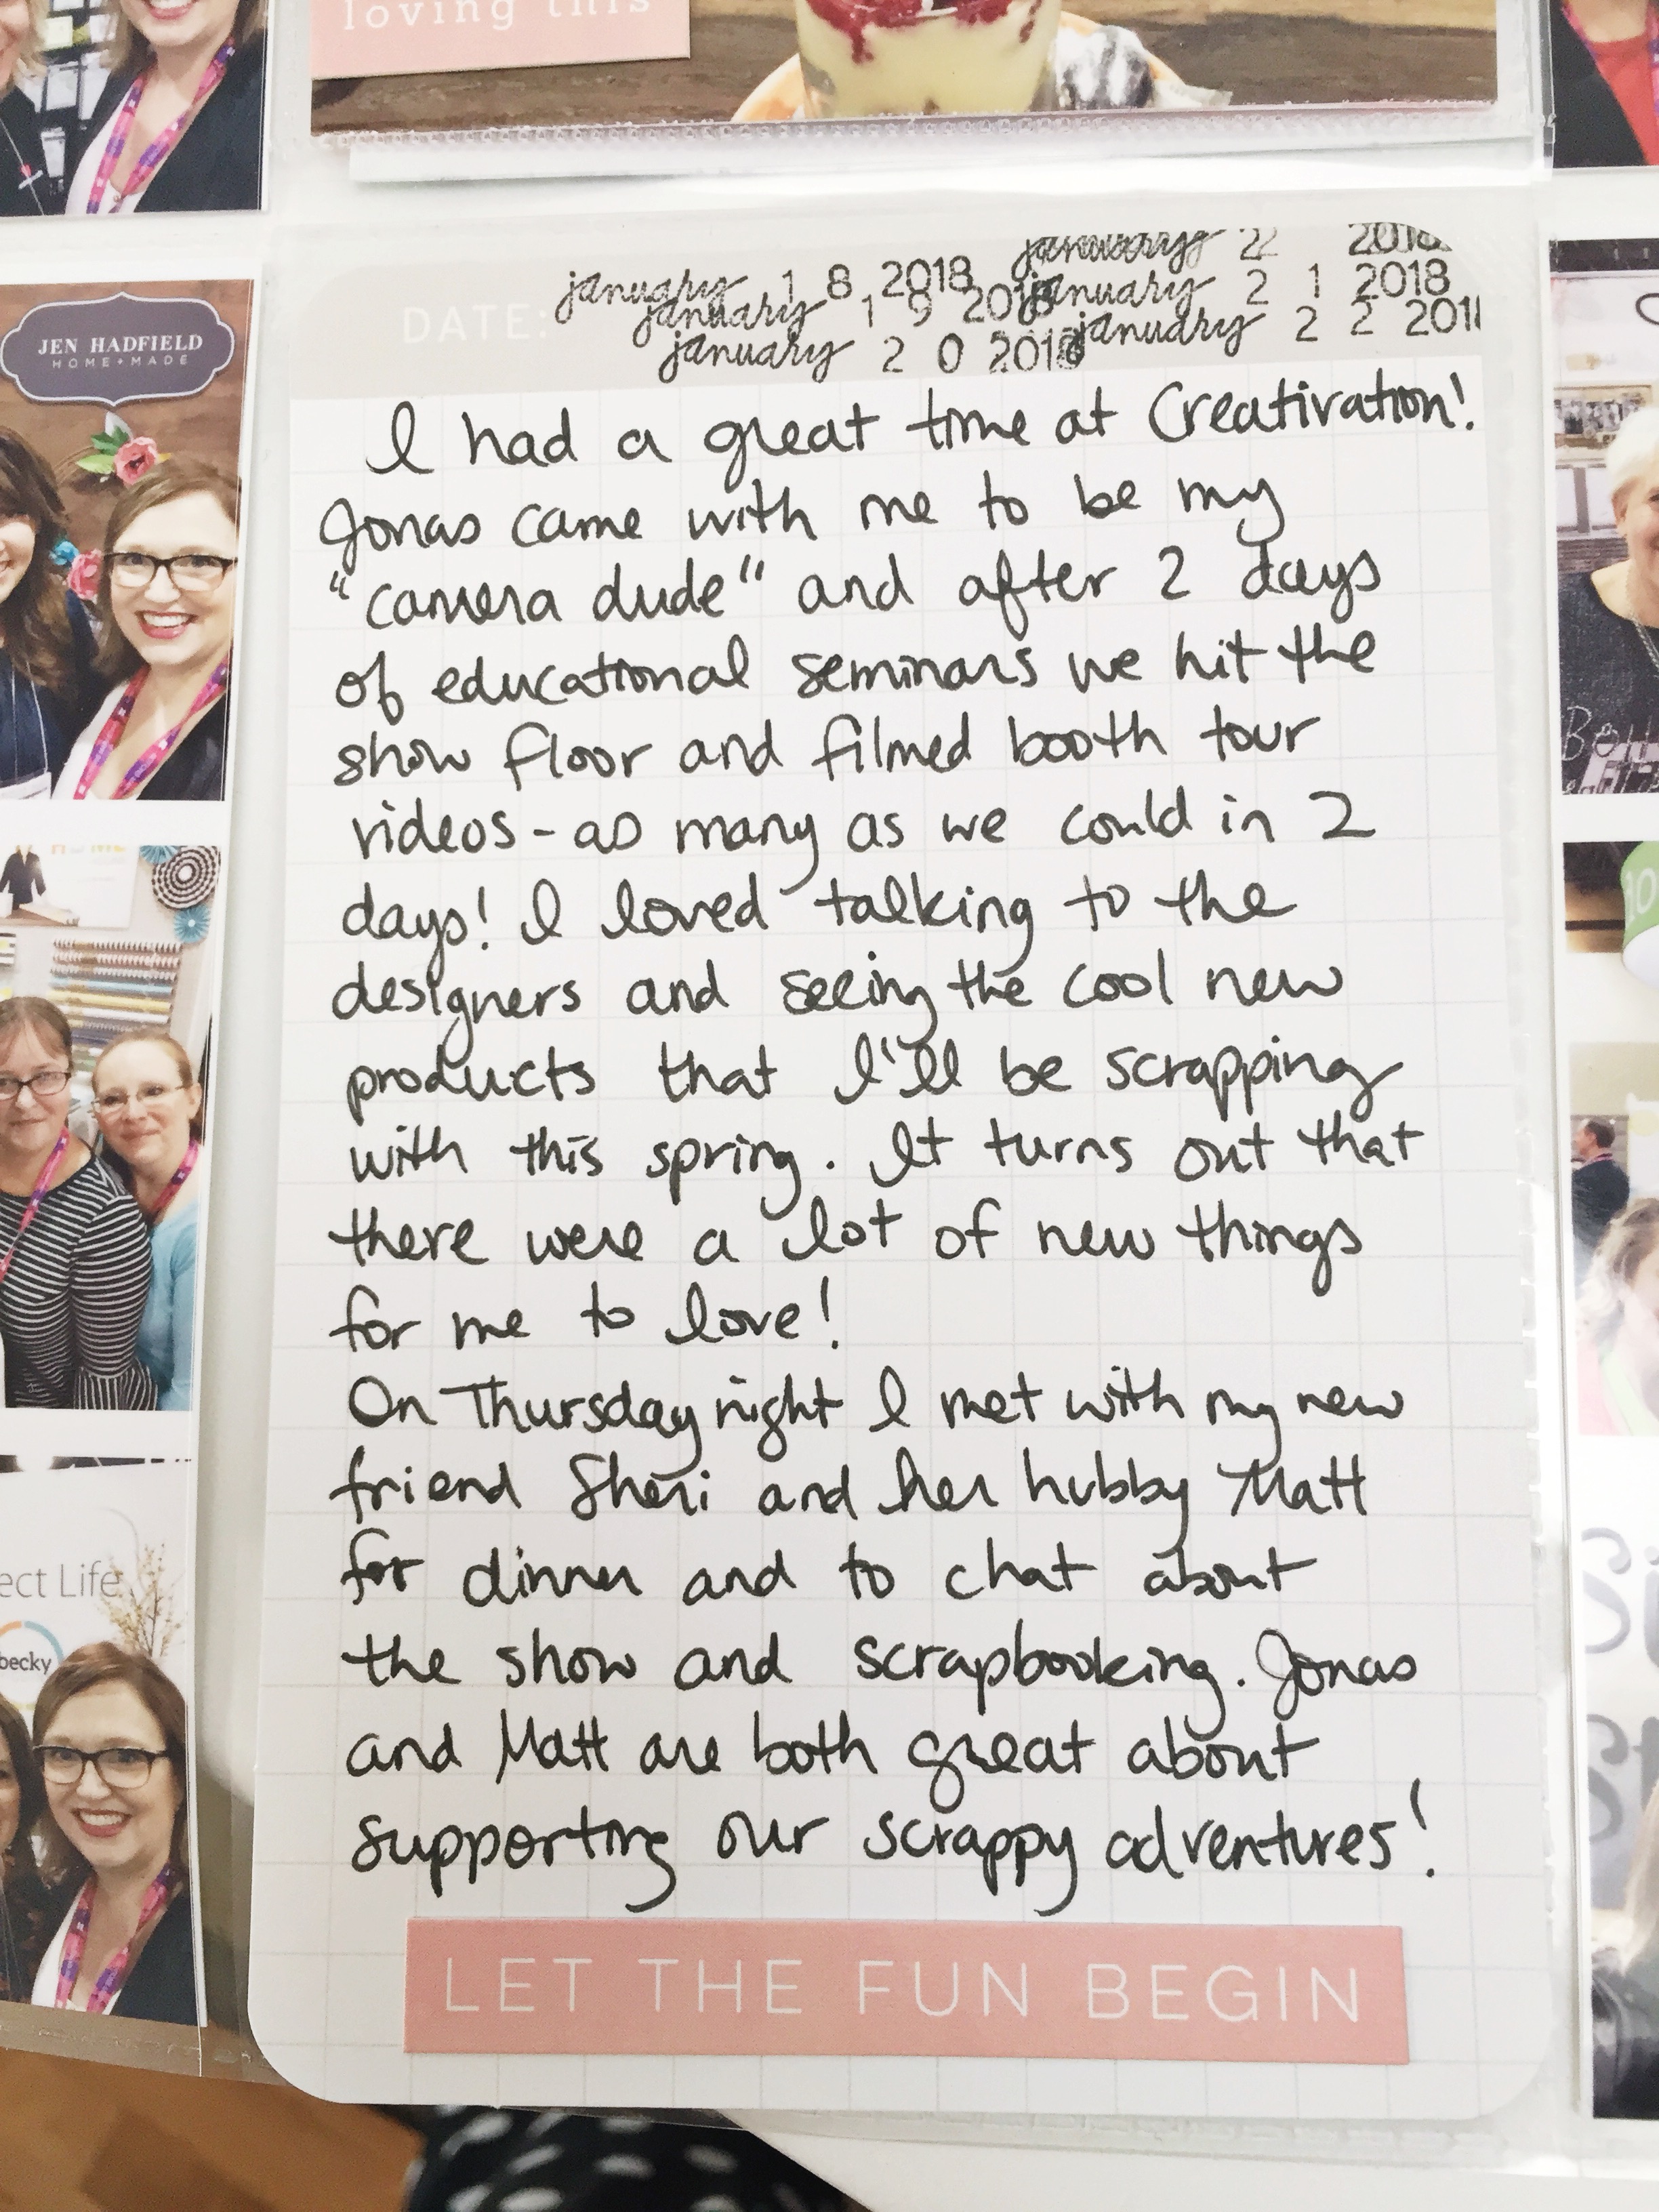 loving this
JEN HADFIELD
HOME + MADE
DATE:
january 18 2018
january 19 2018
january 20 2018
january 22 2018
january 21 2018
january 22 201
I had a great time at Creativation!
Jonas came with me to be my
"camera dude" and after 2 days
of educational seminars we hit the
show floor and filmed booth tour
videos - as many as we could in 2
days! I loved talking to the
designers and seeing the cool new
products that I'll be scrapping
with this spring. It turns out that
there were a lot of new things
for me to love!
On Thursday night I met with my new
friend Sheri and her hubby Matt
for dinner and to chat about
the show and scrapbooking. Jonas
and Matt are both great about
supporting our scrappy adventures!
LET THE FUN BEGIN
ect Life
becky
10